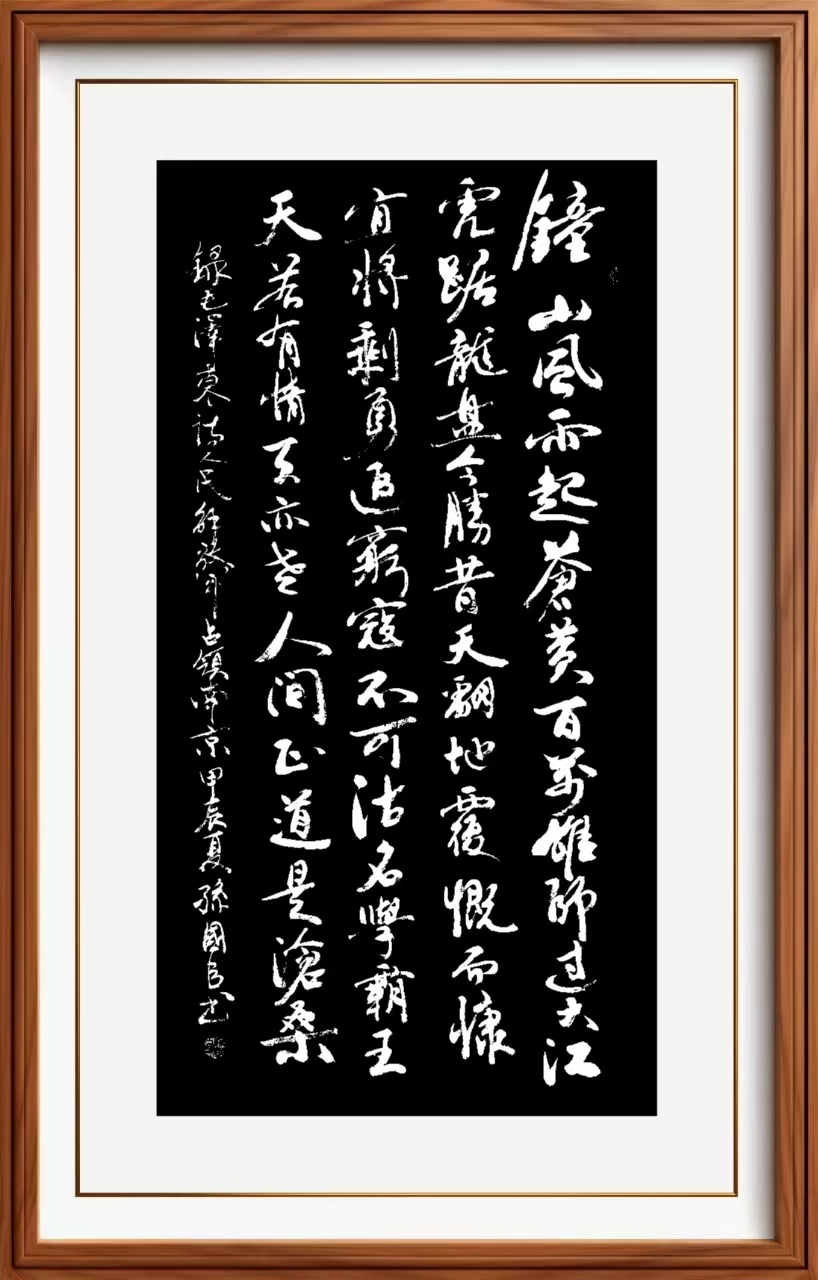 鐘山風雨起蒼黃百萬雄師過大江
虎踞龍盘今勝昔天翻地覆慨而慷
宜將剩勇追窮寇不可沽名學霸王
天若有情天亦老人間正道是滄桑
録毛澤東詩人民解放軍占領南京甲辰夏孫國書